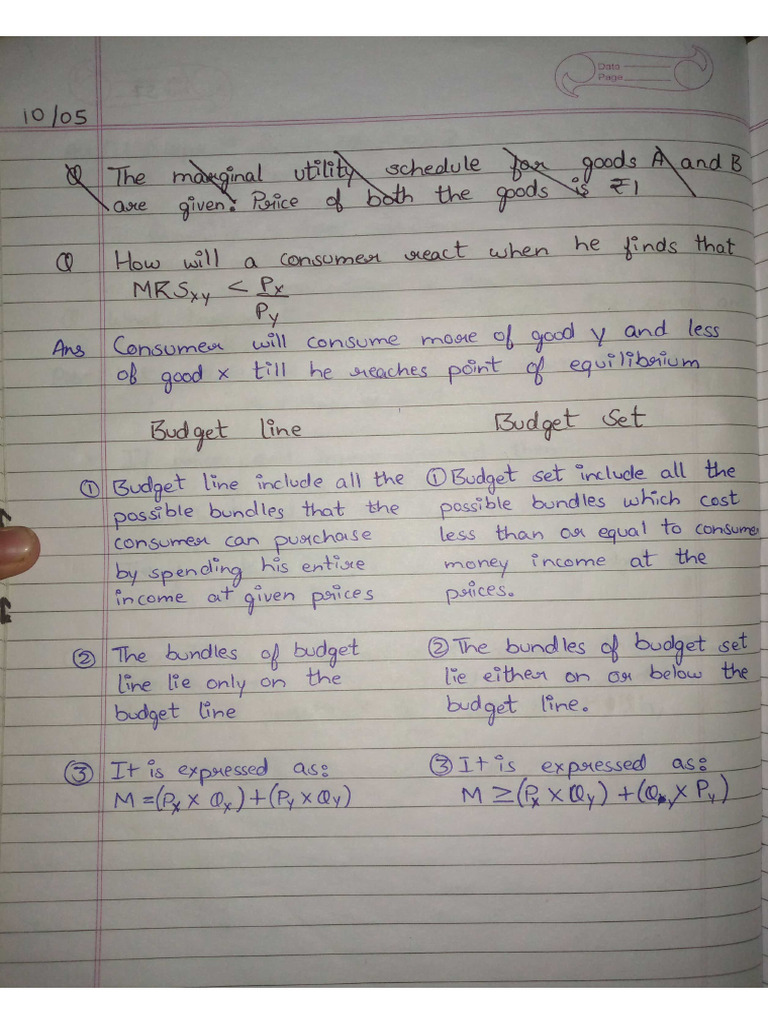 Data
Page
10/05
Q The marginal utility schedule for goods A and B
are given. Price of both the goods is ₹1
Q How will a consumer react when he finds that
MRSxy < Px
Py
Ans Consumer will consume more of good y and less
of good x till he reaches point of equilibrium
Budget line
Budget Set
① Budget line include all the
possible bundles that the
consumer can purchase
by spending his entire
income at given prices
① Budget set include all the
possible bundles which cost
less than or equal to consumer
money income at the
prices.
② The bundles of budget
line lie only on the
budget line
② The bundles of budget set
lie either on or below the
budget line.
③ It is expressed as:
M = (Px × Qx) + (Py × Qy)
③ It is expressed as:
M ≥ (Px × Qy) + (Qy × Py)